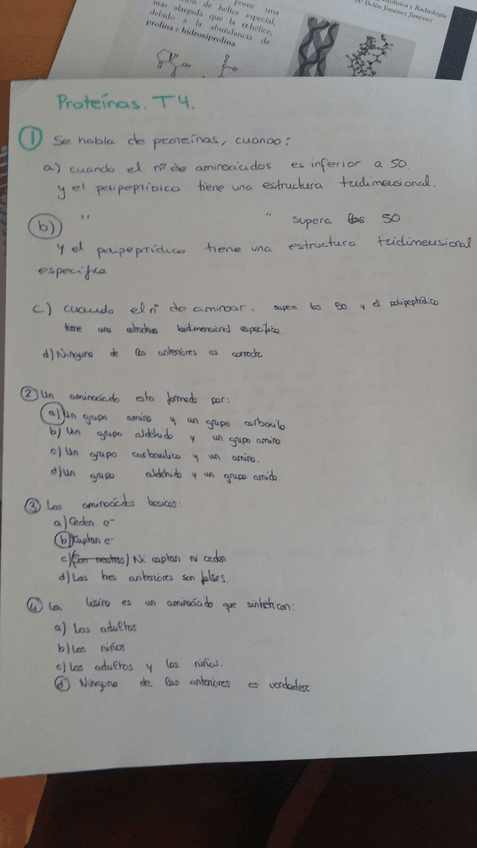 posee una
hélice especial,
más alargada que la α-hélice,
debido a la abundancia de
prolina e hidroxiprolina
y Radiología
Mª Belén Jiménez Jiménez
Proteínas. T4.
① Se habla de proteínas, cuando:
a) cuando el nº de aminoácidos es inferior a 50
y el polipeptídico tiene una estructura tridimensional.
b) " " supera los 50
y el polipeptídico tiene una estructura tridimensional
específica
c) cuando el nº de aminoac. supera los 50 y el polipeptídico
tiene una estructura bidimensional específica
d) Ninguna de las anteriores es correcta
② Un aminoácido esta formado por:
a) Un grupo amino y un grupo carboxilo
b) Un grupo aldehido y un grupo amino
c) Un grupo carboxilico y un amino.
d) Un grupo aldehido y un grupo amido.
③ Los aminoácidos basicos:
a) Ceden e-
b) Captan e-
c) (Son neutros) Ni captan ni ceden
d) Las tres anteriores son falsas.
④ La lisina es un aminoácido que sintetizan:
a) Los adultos
b) Los niños
c) Los adultos y los niños.
d) Ninguna de las anteriores es verdadera